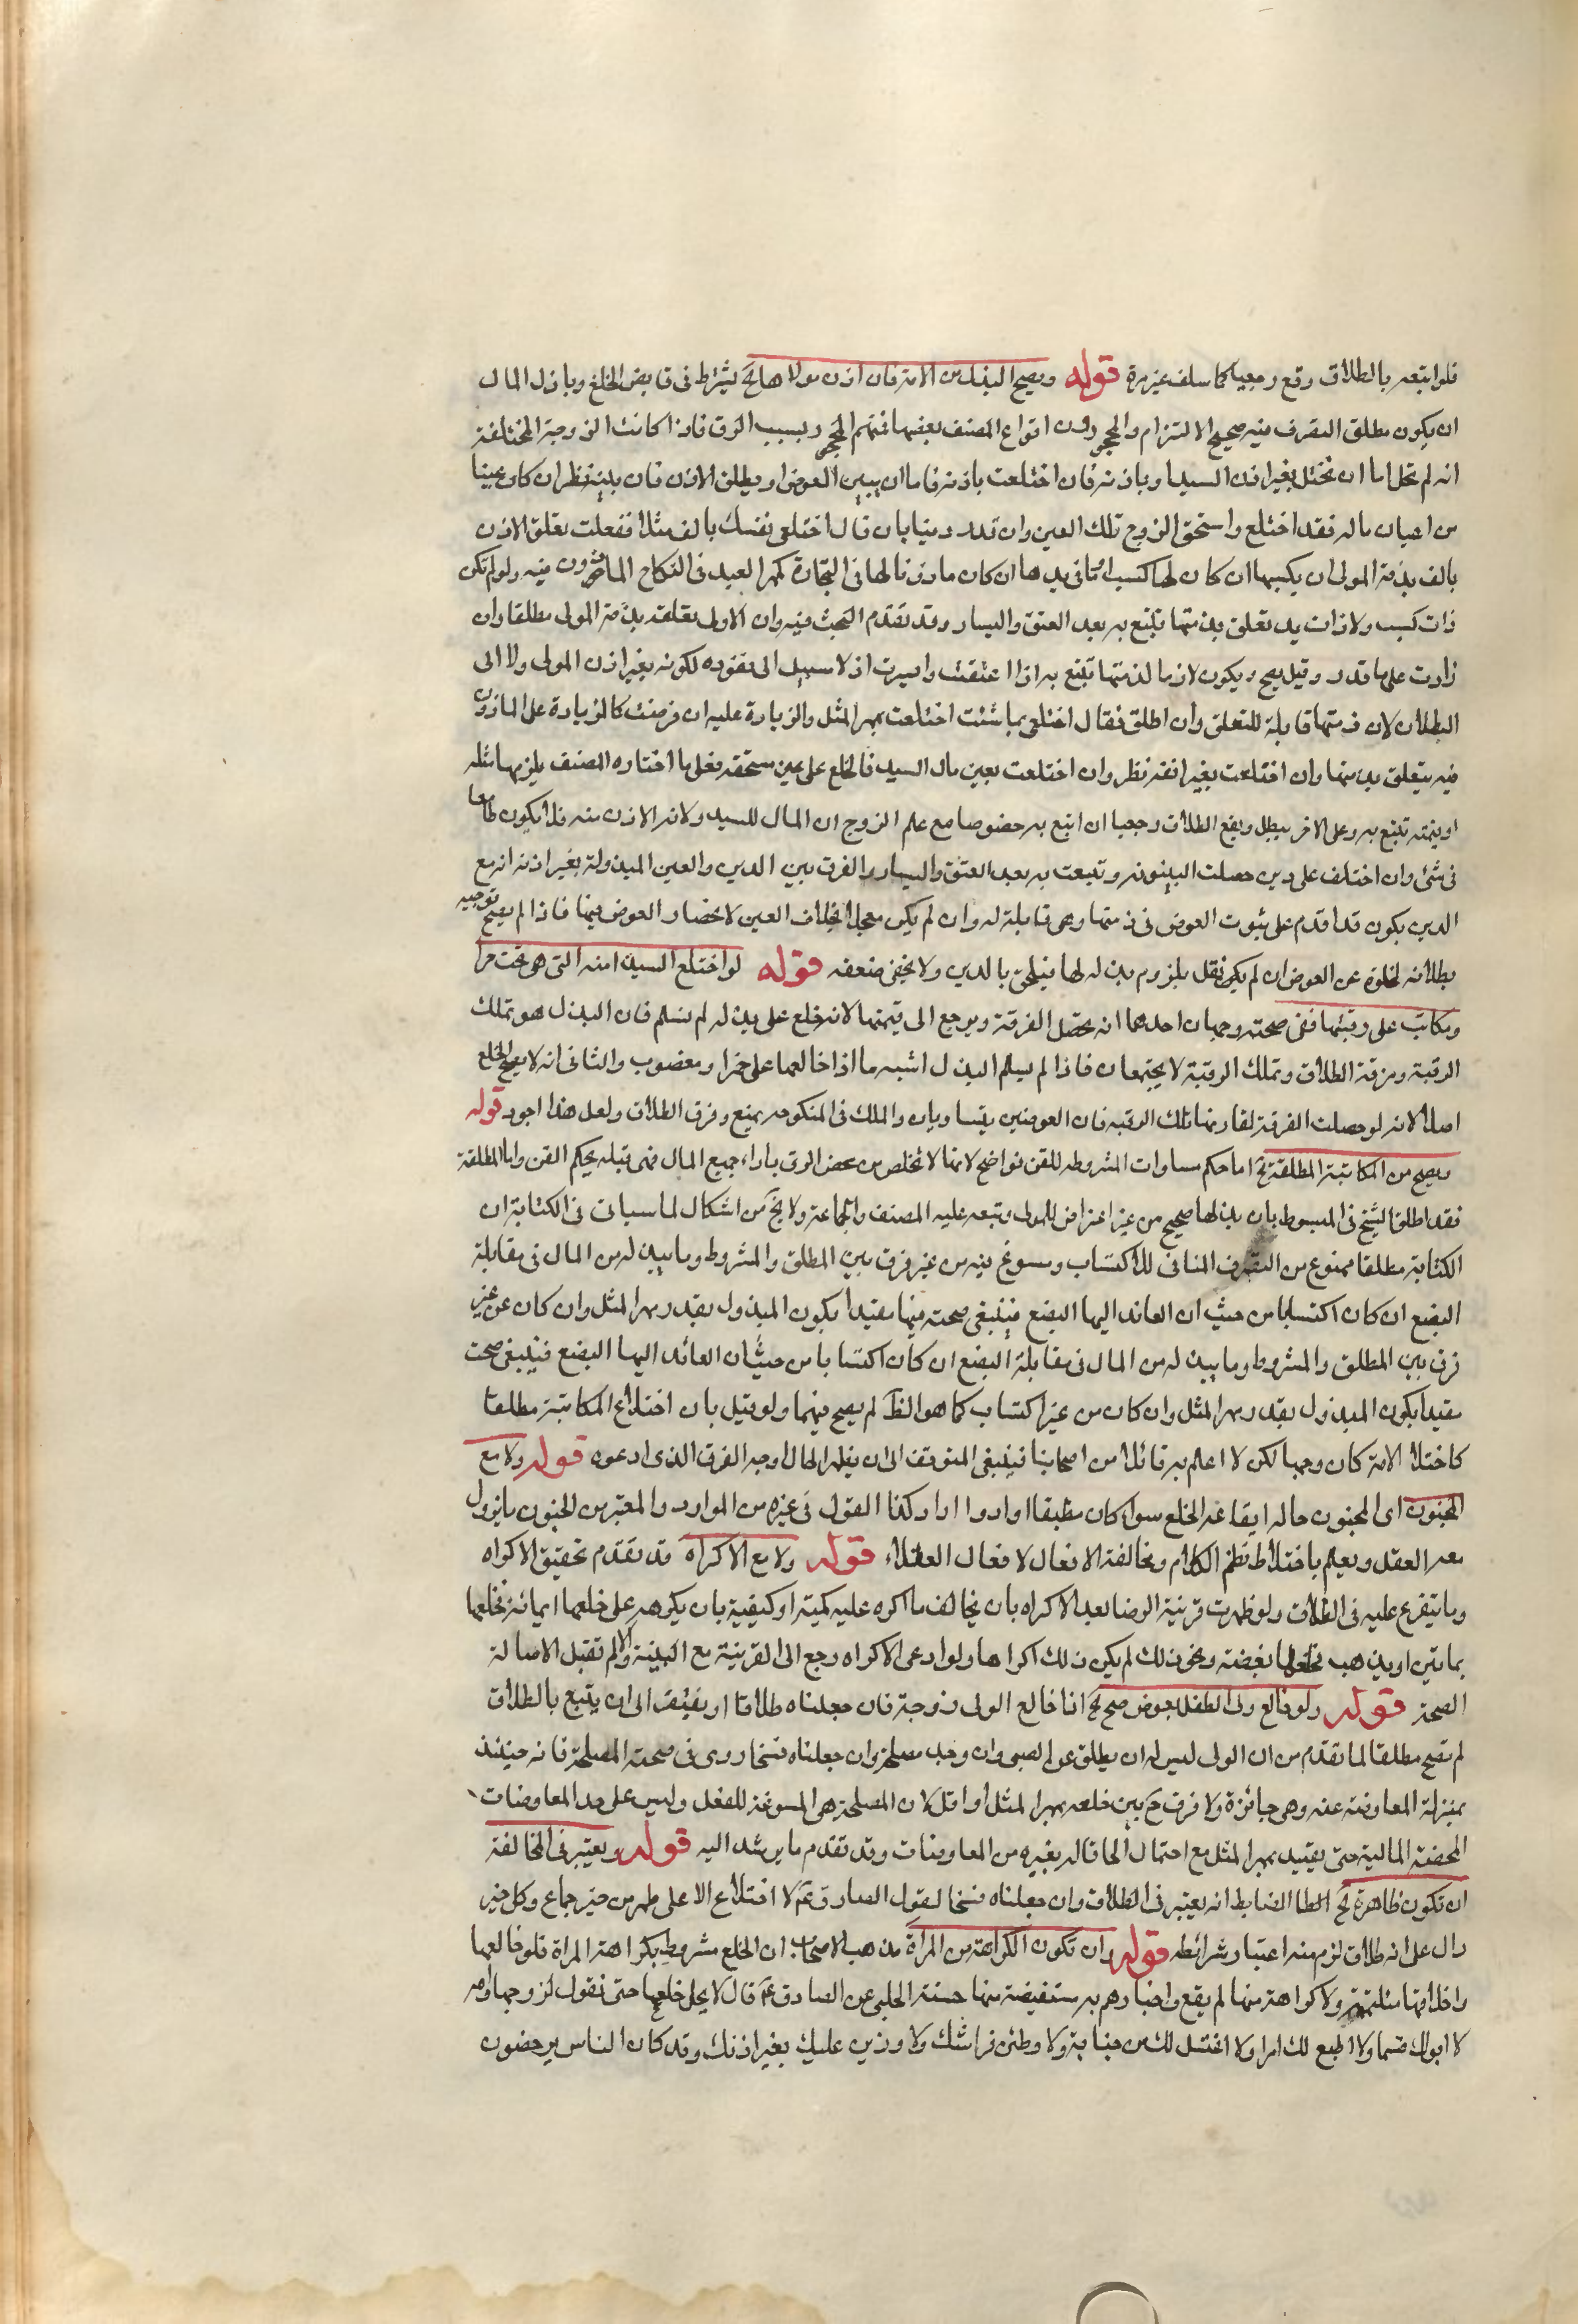 فلو اتبعه بالطلاق وقع رجعيا كما سلف غير مرة قوله ويصح البذل من الامة فان اذن مولاها لخ يشترط في قابض الخلع وباذل المال
ان يكون مطلق التصرف فيه صحيح الالتزام والمحجورون انواع المصنف بعضها فمنهم المحجور بسبب الرق فاذا كانت الزوجة المختلعة
انه لم تخل اما ان تختلع بغير اذن السيد او باذنه فان اختلعت باذنه فاما ان يبين العوض او يطلق الاذن فان بينه نظر ان كان عينا
من اعيان ماله نفذ اختلع واستحق الزوج تلك العين وان قدر دينا بان قال اختلعي نفسك بالف مثلا ففعلت تعلق الاذن
بالف بذمة المولى ان يكسبها ان كان لها كسب او مما في يدها ان كان ماذونا لها في التجارة كمهر العبد في النكاح الماذون فيه ولو لم تكن
ذات كسب ولا ذات يد تعلق بذمتها تتبع به بعد العتق واليسار وقد تقدم البحث فيه وان الاولى تعلقه بذمة المولى مطلقا وان
زادت على ما قدر وقيل يصح ويكون لازما لذمتها تتبع به اذا اعتقت وايسرت اذ لا سبيل الى نفوذه لكونه بغير اذن المولى ولا الى
البطلان لان ذمتها قابلة للتعلق وان اطلق فقال اختلعي بما شئت اختلعت بمهر المثل والزيادة عليه ان فرضت كالزيادة على الماذون
فيه يتعلق بذمتها وان اختلعت بغير اذنه نظر وان اختلعت بعين مال السيد فالخلع على عين مستحقه فعلى ما اختاره المصنف يلزمها مثله
او قيمته تتبع به وعلى الاخر يبطل ويقع الطلاق رجعيا ان اتبع به خصوصا مع علم الزوج ان المال للسيد ولانه الاذن منه فلا يكون طامعا
في شئ وان اختلف على دين حصلت البينونه وتبعت به بعد العتق واليسار والفرق بين الدين والعين المبذولة بغير اذنه انه مع
الدين يكون قد اقدم على ثبوت العوض في ذمتها وهي قابلة له وان لم يكن معجلا بخلاف العين لانحصار العوض فيها فاذا لم يصح توجيه
بطلانه لخلوه عن العوض ان لم يكن نقل يلزم بدله لها فيلحق بالدين ولا يخفى ضعفه قوله لو اختلع السيد امته التي هو تحت حر او
ومكاتب على رقبتها ففي صحته وجهان احدهما انه تحصل الفرقة ويرجع الى قيمتها لانه خلع على بذل لم تسلم فان البذل هو تملك
الرقبة وفرقة الطلاق وتملك الرقبة لا يجتمعان فاذا لم يسلم البذل اشبه ما اذا خالعها على خمر او مغصوب والثاني انه لا يصح الخلع
اصلا لانه لو حصلت الفرقة لقارنها تلك الرقبه فان العوضين يتساويان والملك في المنكوحه يمنع وقوع الطلاق ولعل هذا اجود قوله
ويصح من المكاتبة المطلقة لخ اما حكم مساوات المشروطه للقن فواضح لانها لا تخلص من محض الرق باداء جميع المال فهي قبله بحكم القن واما المطلقة
فقد اطلق الشيخ في المبسوط بان بذلها صحيح من غير اعتراض للمولى وتبعه عليه المصنف والجماعة ولا يخ من اشكال لما سياتي في الكتابة ان
الكتابة مطلقا ممنوع من التصرف المنافي للاكتساب ومسوغ فيه من غير فرق بين المطلق والمشروط وما يبذله من المال في مقابلة
البضع ان كان اكتسابا من حيث ان العائد اليها البضع فينبغي صحته فيها مقيدا بكون المبذول بقدر مهر المثل وان كان من غير
فرق بين المطلق والمشروط وما يبذله من المال في مقابلة البضع ان كان اكتسابا من حيث ان العائد اليها البضع فينبغي صحت
مقيدا بكون المبذول بقدر مهر المثل وان كان من غير اكتساب كما هو الظ لم يصح فيهما ولو قيل بان اختلاع المكاتبة مطلقا
كاختلاع الامة كان وجها لكن لا اعلم به قائلا من اصحابنا فينبغي التوقف الى ان يظهر الحال او وجه الفرق الذي ادعوه قوله ولا مع
الجنون اي الجنون حاله ايقاعه الخلع سواء كان مطبقا او ادوارا وكذا القول في غيره من الموارد والمعتبر من الجنون ما يزول
معه العقل ويعلم باختلاط نظم الكلام ومخالفة الافعال لافعال العقلاء قوله ولا مع الاكراه قد تقدم تحقيق الاكراه
وما يتفرع عليه في الطلاق ولو ظهرت قرينة الرضا بعد الاكراه بان يخالف ما اكره عليه كمية او كيفية بان يكرهه على خلعها بمائة فخلعها
بماتين او بذهب فخلعها بفضته ونحو ذلك لم يكن ذلك اكراها ولو ادعى الاكراه رجع الى القرينة مع البينة والا لم تقبل الاصالة
الصحة قوله ولو خالع ولي الطفل بعوض صح لخ اذا خالع الولي زوجة فان جعلناه طلاقا او يفتقر الى ان يتبع بالطلاق
لم يصح مطلقا لما تقدم من ان الولي ليس له ان يطلق عن الصبي وان وجد مصلحة وان جعلناه فسخا روعي في صحته المصلحة فانه حينئذ
بمنزلة المعاوضه عنه وهي جائزة ولا فرق ح بين خلعه بمهر المثل او اقل لان المصلحة هي المسوغة للفعل وليس على حد المعاوضات
المحضة المالية حتى يتقيد بمهر المثل مع احتمال الحاقا له بغيره من المعاوضات وقد تقدم ما يرشد اليه قوله ويعتبر في المخالفة
ان تكون طاهرة لخ الضابط انه يعتبر في الطلاق وان جعلناه فسخا لقول الصادق ع لا اختلاع الا على طهر من غير جماع وكل خبر
دال على انه طلاق لزم منه اعتبار شرائطه قوله وان تكون الكراهة من المراة مذهب الاصحاب ان الخلع مشروط بكراهة المراة فلو خالعها
واخلاقهما ملتئمة ولا كراهة منها لم يقع واخبارهم به مستفيضة منها حسنة الحلبي عن الصادق ع قال لا يحل خلعها حتى تقول لزوجها والله
لا ابر لك قسما ولا اطيع لك امرا ولا اغتسل لك من جنابة ولا وطئن فراشك ولاوذنن عليك بغير اذنك وقد كان الناس يرخصون